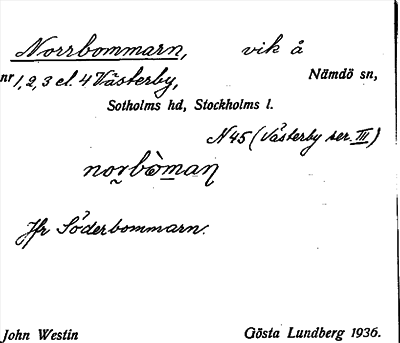 Norrbommarn, vik å
nr 1, 2, 3 el. 4 Västerby, Nämdö sn,
Sotholms hd, Stockholms l.
N 45 (Västerby ser. III)
norbòman
Jfr Söderbommarn.
John Westin Gösta Lundberg 1936.